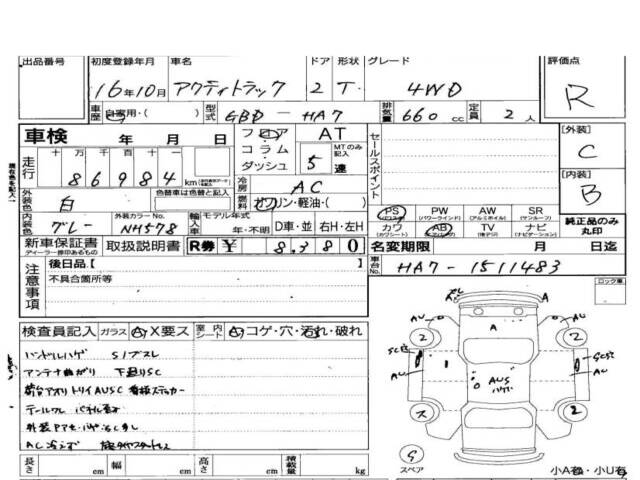 出品番号 初度登録年月 車名 ドア 形状 グレード 評価点
16年10月 アクティトラック 2 T. 4WD R
車歴 自家用・( ) 型式 GBD - HA7 排気量 660 cc 定員 2 人
車検 年 月 日 フロア AT
コラム MTのみ記入
ダッシュ 5 速
走行 十万 万 千 百 十 一
86984 km
冷房 AC
外装色 白 色替車は色替と記入
燃料 ガソリン・軽油・( )
内装色 グレー 外装カラーNo. NH578 輸入車 モデル年式 年・不明 D車・並 右H・左H
新車保証書 取扱説明書 R券 ¥ 8,380
ディーラー捺印あるもの
セールスポイント
[外装] C
[内装] B
PS PW AW SR
(パワステ) (パワーウインド) (アルミホイル) (サンルーフ)
カワ AB TV ナビ
(カワシート) (エアバッグ) (電子アナログ) (ナビゲーション)
純正品のみ丸印
名変期限 月 日迄
車台No. HA7-1511483
現在色を記入
注意事項 後日品[ ]
不具合箇所等
ロック車
検査員記入 ガラス A X要ス 室内シート A コゲ・穴・汚れ・破れ
ハンドルハゲ Sノブスレ
アンテナ曲がり 下廻りSC
荷台アオリ トリイAUSC 看板ステッカー
テールワレ
AC冷えず
A A AU AU 2 2 SC穴 SC穴 AU AU AUS ス 2 G
スペア
小A有・小U有
長さ cm 幅 cm 高さ cm 積載量 kg